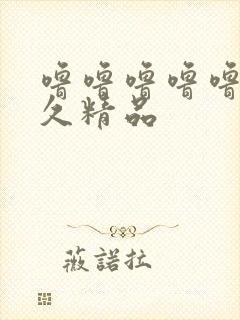 噜噜噜噜噜
久精品
薇諾拉